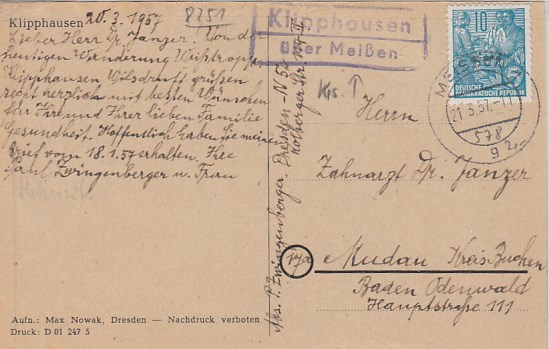 Klipphausen 20.3.1957
8251
Lieber Herr Dr. Janzer. Von der
heutigen Wanderung Weistropp
Klipphausen Wilsdruff grüßen
recht herzlich mit besten Wünschen
für Ihre und Ihrer lieben Familie
Gesundheit. Hoffentlich haben Sie meinen
Brief vom 18.1.57 erhalten. Ihre
Paul Zwingenberger u. Frau
Aufn.: Max Nowak, Dresden — Nachdruck verboten
Druck: D 01 247 5
Abs. P. Zwingenberger, Dresden-N 52
Kolberger Str.
Klipphausen
über Meißen
10
DEUTSCHE
DEMOKRATISCHE REPUBLIK
MEISSEN
21.3.57.-11
578
g 2
Krs. ↑
Herrn
Zahnarzt Dr. Janzer
17a
Mudau Kreis Buchen
Baden Odenwald
Hauptstraße 111